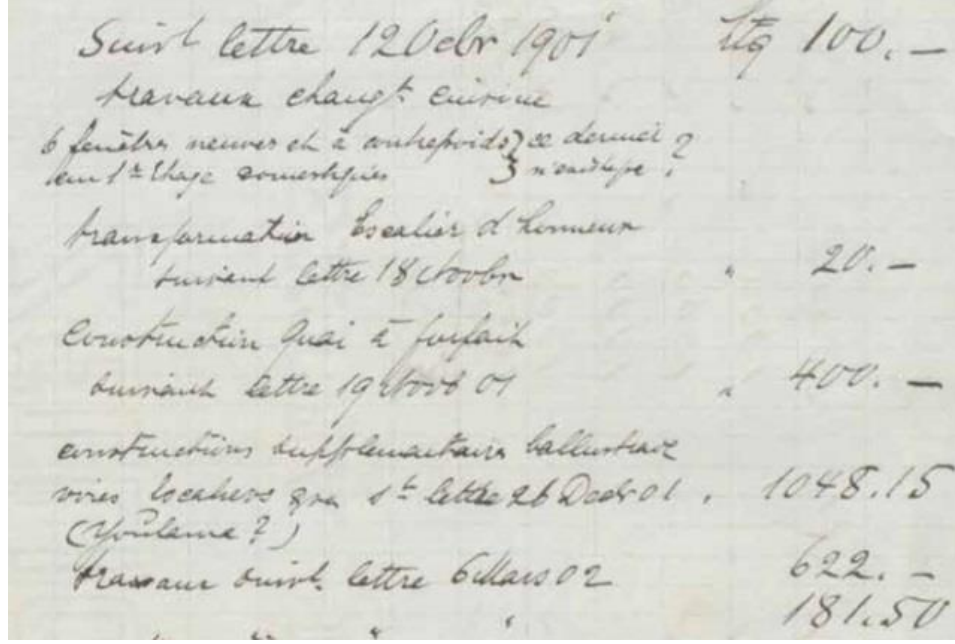 Suivt lettre 12 Octbr 1901 Ltq 100.—
travaux changt cuisine
6 fenêtres neuves et à contrepoids } ce dernier ?
1er Etage domestiques
transformation Escalier d'honneur
suivant lettre 18 Novbr " 20.—
Construction Quai à forfait
suivant lettre 19 Novb 01 " 400.—
constructions supplementaires ballustrade
st lettre 26 Decbr 01 " 1048.15
travaux suivt. lettre 6 Mars 02 622.—
" " 181.50